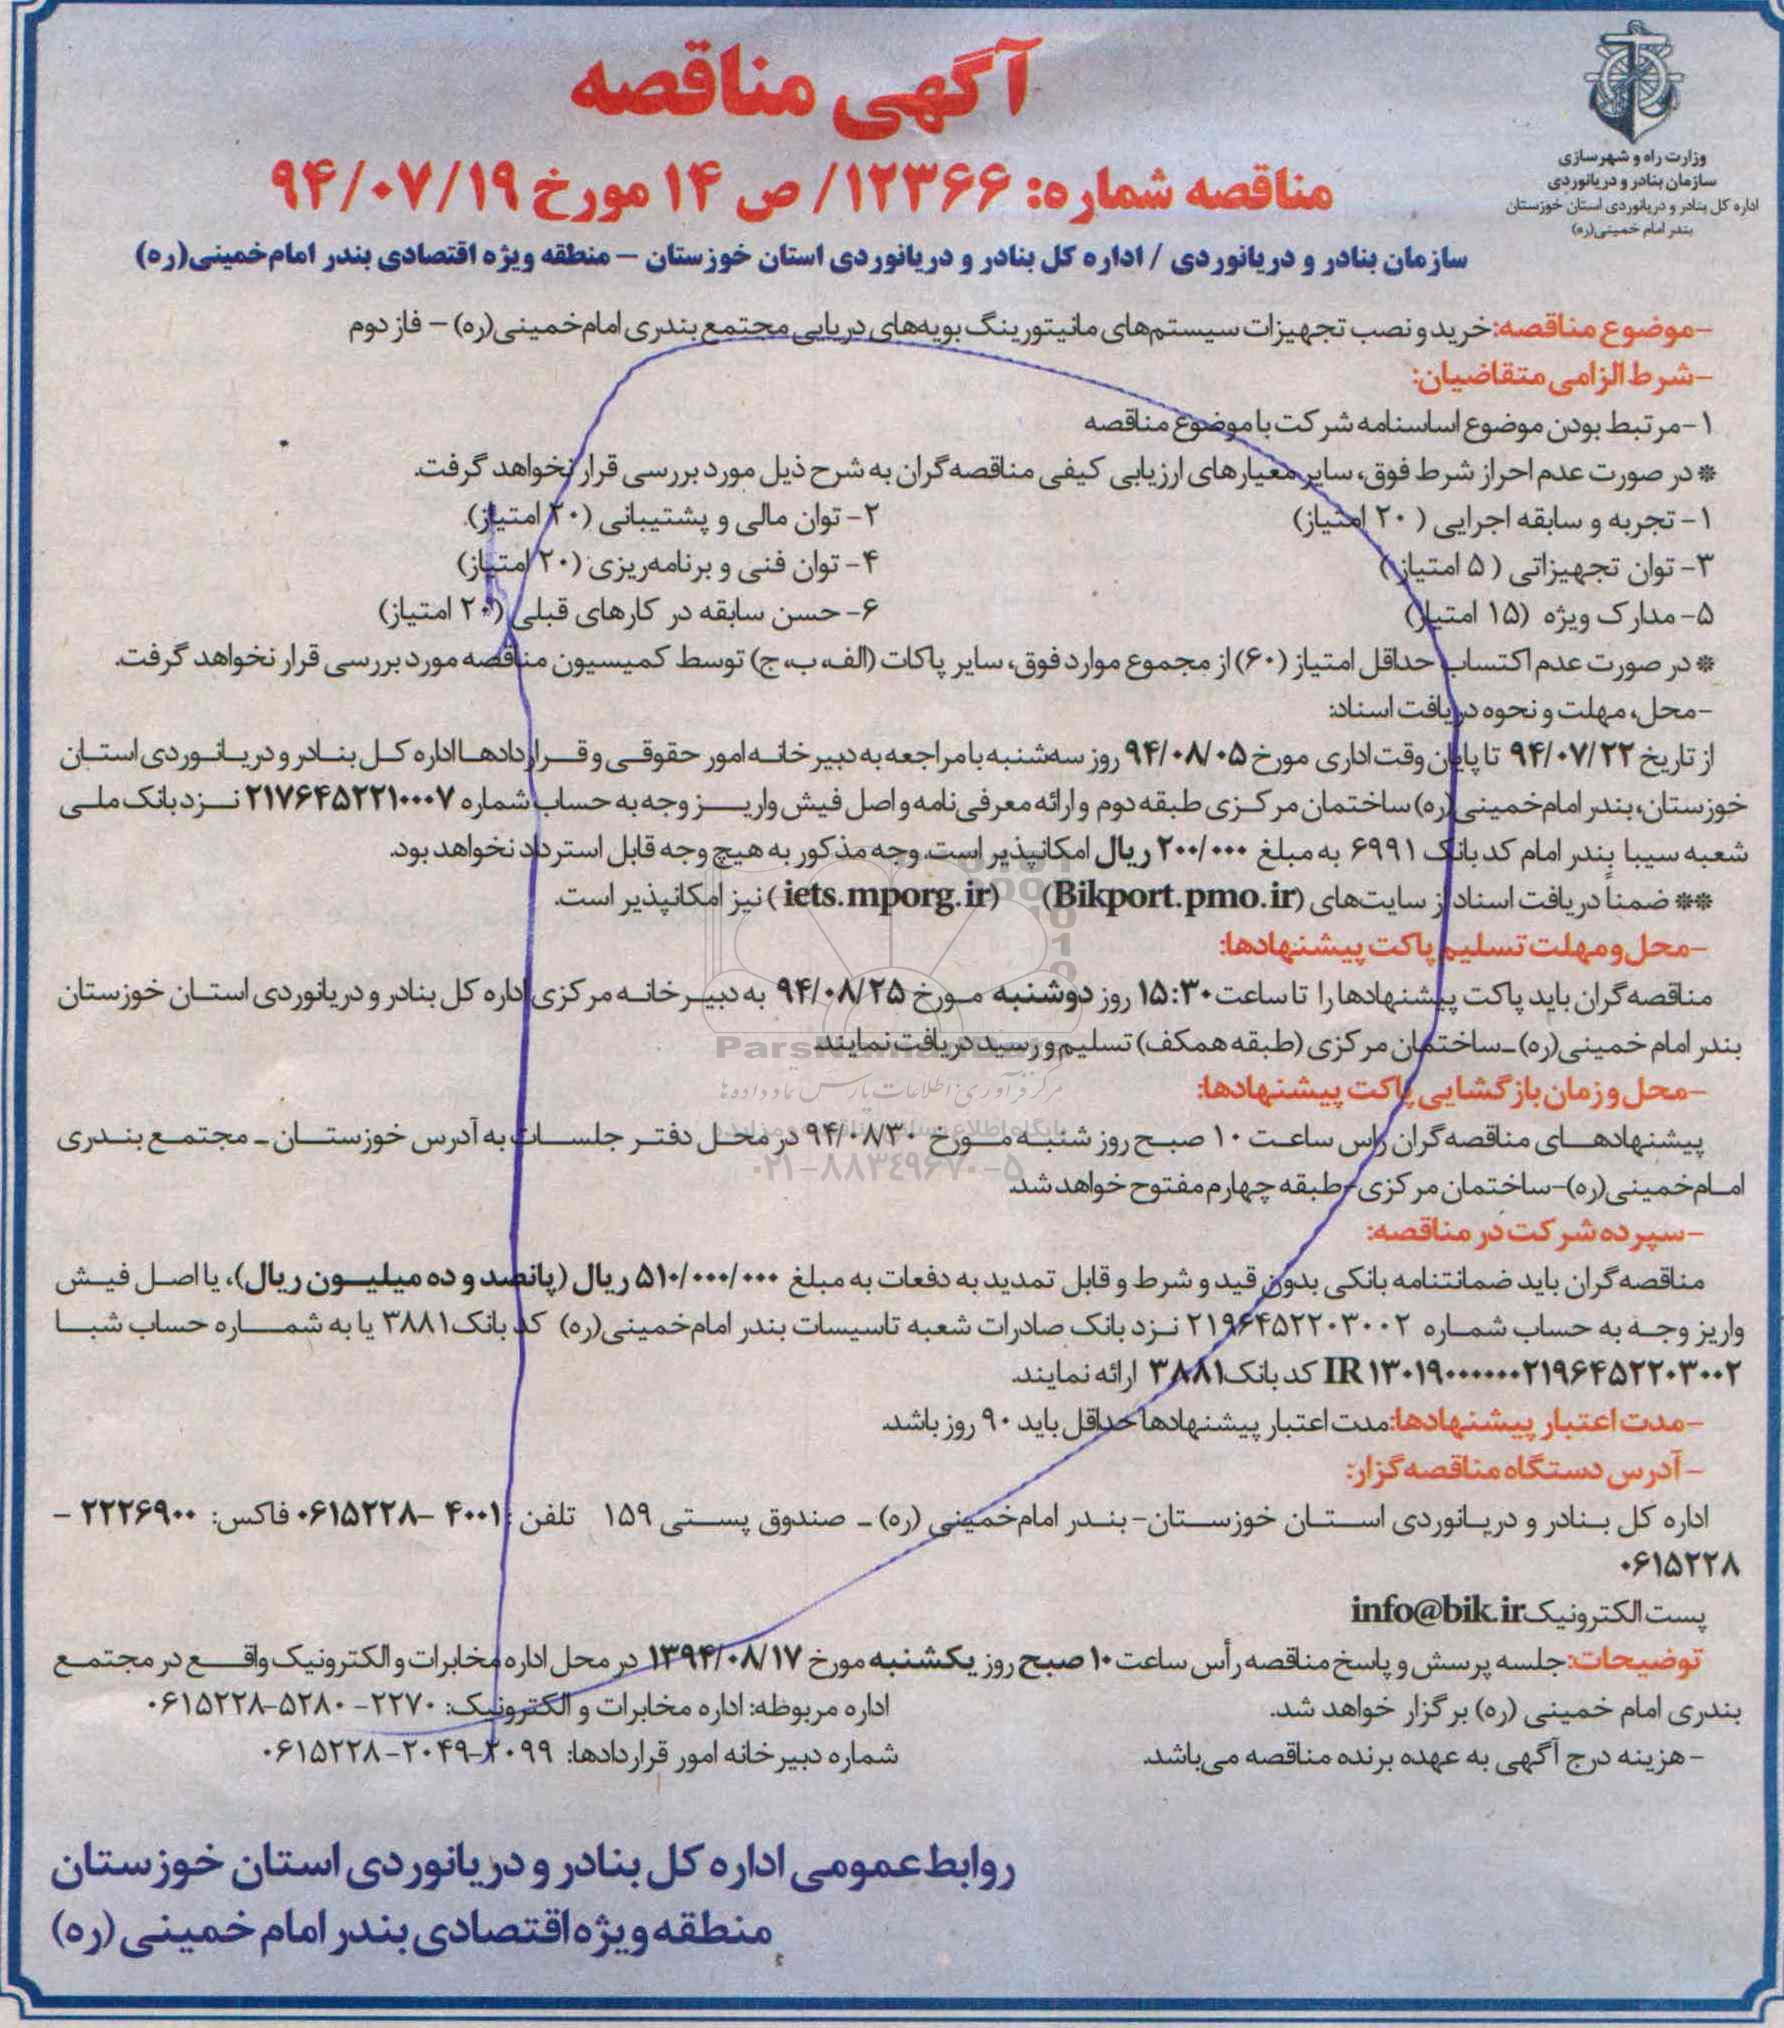 وزارت راه و شهرسازی
سازمان بنادر و دریانوردی
اداره کل بنادر و دریانوردی استان خوزستان
بندر امام خمینی(ره)
آگهی مناقصه
مناقصه شماره: ۱۲۳۶۶/ ص ۱۴ مورخ ۹۴/۰۷/۱۹
سازمان بنادر و دریانوردی / اداره کل بنادر و دریانوردی استان خوزستان – منطقه ویژه اقتصادی بندر امام‌خمینی(ره)
-موضوع مناقصه:خرید و نصب تجهیزات سیستم‌های مانیتورینگ بویه‌های دریایی مجتمع بندری امام‌خمینی(ره) – فاز دوم
-شرط الزامی متقاضیان:
۱-مرتبط بودن موضوع اساسنامه شرکت با موضوع مناقصه
* در صورت عدم احراز شرط فوق، سایر معیارهای ارزیابی کیفی مناقصه‌گران به شرح ذیل مورد بررسی قرار نخواهد گرفت.
۱- تجربه و سابقه اجرایی ( ۲۰ امتیاز) ۲- توان مالی و پشتیبانی (۲۰ امتیاز).
۳- توان تجهیزاتی ( ۵ امتیاز ) ۴- توان فنی و برنامه‌ریزی (۲۰ امتیاز)
۵- مدارک ویژه (۱۵ امتیاز) ۶- حسن سابقه در کارهای قبلی (۲۰ امتیاز)
* در صورت عدم اکتساب حداقل امتیاز (۶۰) از مجموع موارد فوق، سایر پاکات (الف، ب، ج) توسط کمیسیون مناقصه مورد بررسی قرار نخواهد گرفت.
-محل، مهلت و نحوه دریافت اسناد:
از تاریخ ۹۴/۰۷/۲۲ تا پایان وقت اداری مورخ ۹۴/۰۸/۰۵ روز سه‌شنبه با مراجعه به دبیرخانه امور حقوقی و قراردادها اداره کل بنادر و دریانوردی استان
خوزستان، بندر امام‌خمینی(ره) ساختمان مرکزی طبقه دوم و ارائه معرفی‌نامه و اصل فیش واریز وجه به حساب شماره ۲۱۷۶۴۵۲۲۱۰۰۰۷ نزد بانک ملی
شعبه سیبا بندر امام کد بانک ۶۹۹۱ به مبلغ ۲۰۰/۰۰۰ ریال امکانپذیر است. وجه مذکور به هیچ وجه قابل استرداد نخواهد بود.
** ضمناً دریافت اسناد از سایت‌های (Bikport.pmo.ir) (iets.mporg.ir ) نیز امکانپذیر است.
-محل و مهلت تسلیم پاکت پیشنهادها:
مناقصه‌گران باید پاکت پیشنهادها را تا ساعت ۱۵:۳۰ روز دوشنبه مورخ ۹۴/۰۸/۲۵ به دبیرخانه مرکزی اداره کل بنادر و دریانوردی استان خوزستان
بندر امام خمینی(ره)-ساختمان مرکزی (طبقه همکف) تسلیم و رسید دریافت نمایند.
مرکز فرآوری اطلاعات پارس نماد داده‌ها
-محل و زمان بازگشایی پاکت پیشنهادها:
پیشنهادهای مناقصه‌گران راس ساعت ۱۰ صبح روز شنبه مورخ ۹۴/۰۸/۳۰ در محل دفتر جلسات به آدرس خوزستان – مجتمع بندری
۰۲۱-۸۸۳۴۹۶۷۰-۵
امام‌خمینی(ره)-ساختمان مرکزی-طبقه چهارم مفتوح خواهد شد.
-سپرده شرکت در مناقصه:
مناقصه‌گران باید ضمانتنامه بانکی بدون قید و شرط و قابل تمدید به دفعات به مبلغ ۵۱۰/۰۰۰/۰۰۰ ریال (پانصد و ده میلیون ریال)، یا اصل فیش
واریز وجه به حساب شماره ۲۱۹۶۴۵۲۲۰۳۰۰۲ نزد بانک صادرات شعبه تاسیسات بندر امام‌خمینی(ره) کد بانک ۳۸۸۱ یا به شماره حساب شبا
IR ۱۳۰۱۹۰۰۰۰۰۰۰۲۱۹۶۴۵۲۲۰۳۰۰۲ کد بانک ۳۸۸۱ ارائه نمایند.
-مدت اعتبار پیشنهادها:مدت اعتبار پیشنهادها حداقل باید ۹۰ روز باشد.
- آدرس دستگاه مناقصه‌گزار:
اداره کل بنادر و دریانوردی استان خوزستان- بندر امام‌خمینی (ره) – صندوق پستی ۱۵۹ تلفن : ۴۰۰۱ -۰۶۱۵۲۲۸ فاکس: ۲۲۲۶۹۰۰ -
۰۶۱۵۲۲۸
پست الکترونیک info@bik.ir
توضیحات:جلسه پرسش و پاسخ مناقصه رأس ساعت ۱۰ صبح روز یکشنبه مورخ ۱۳۹۴/۰۸/۱۷ در محل اداره مخابرات و الکترونیک واقع در مجتمع
بندری امام خمینی (ره) برگزار خواهد شد. اداره مربوطه: اداره مخابرات و الکترونیک: ۲۲۷۰- ۵۲۸۰-۰۶۱۵۲۲۸
- هزینه درج آگهی به عهده برنده مناقصه می‌باشد. شماره دبیرخانه امور قراردادها: ۲۰۹۹-۲۰۴۹-۰۶۱۵۲۲۸
روابط عمومی اداره کل بنادر و دریانوردی استان خوزستان
منطقه ویژه اقتصادی بندر امام خمینی (ره)